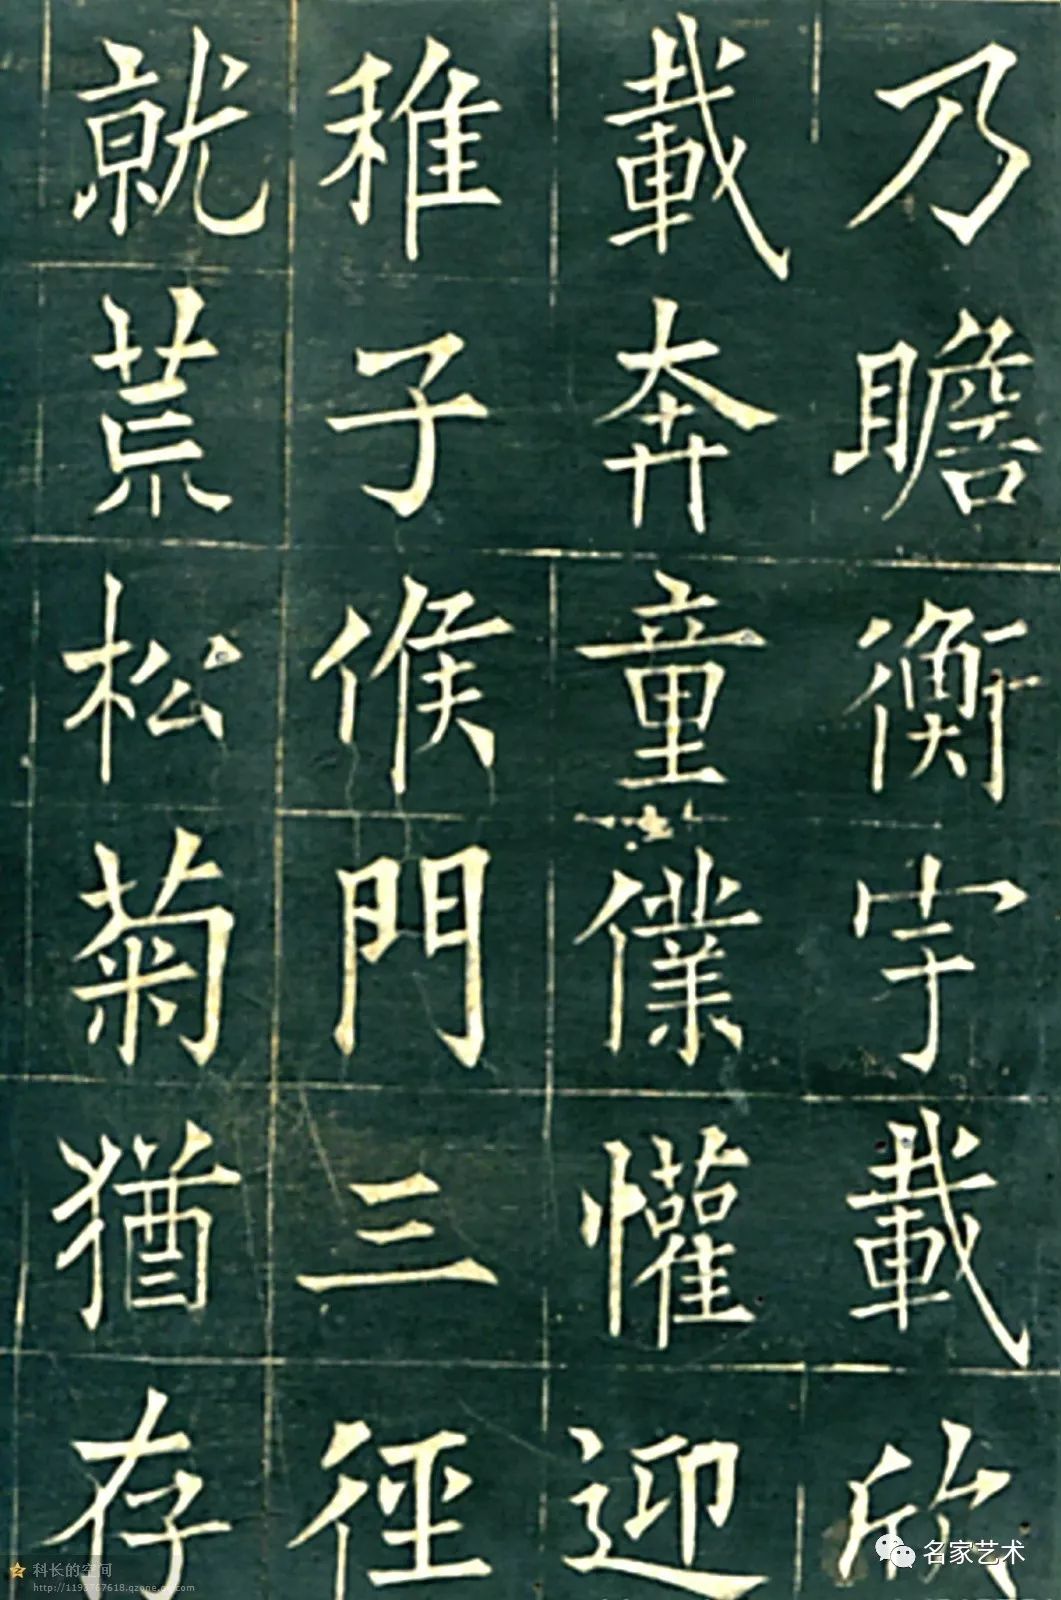 乃瞻衡宇載欣
載奔童僕懽迎
稚子候門三徑
就荒松菊猶存
科长的空间
http://1193767618.qzone.qq.com
名家艺术